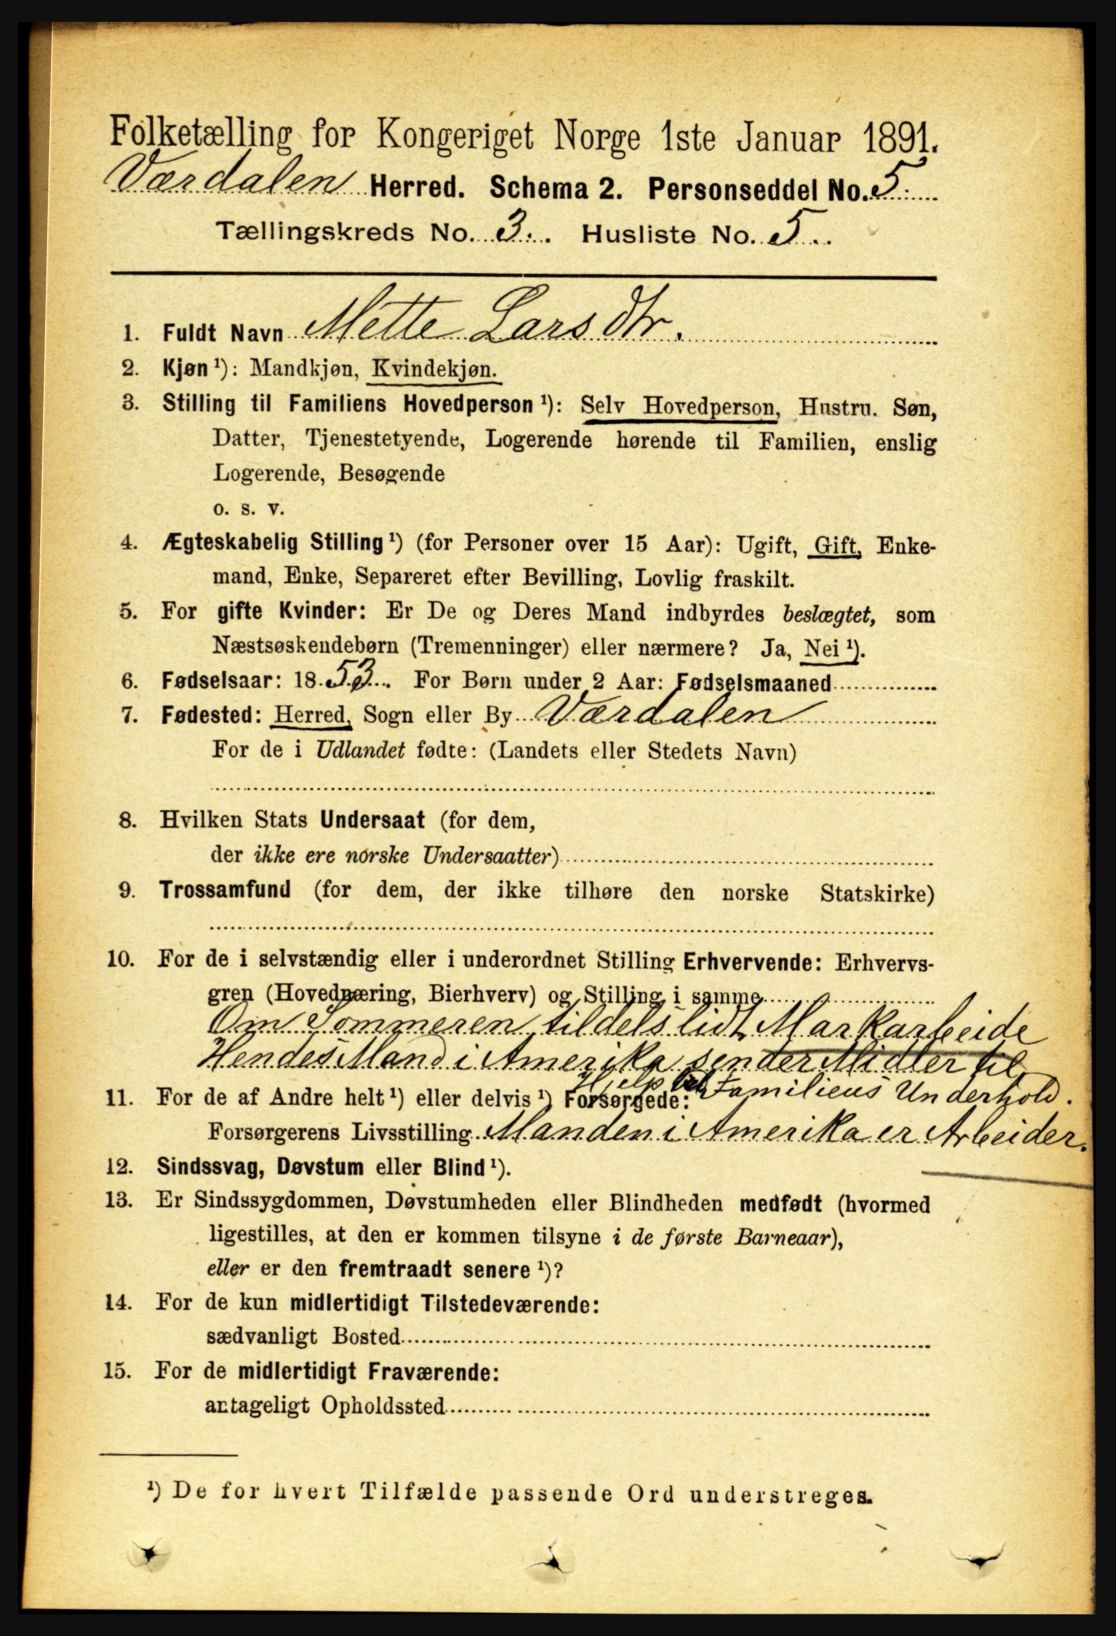 Folketælling for Kongeriget Norge 1ste Januar 1891.
Værdalen Herred. Schema 2. Personseddel No. 5.
Tællingskreds No. 3. Husliste No. 5.
1. Fuldt Navn Mette Larsdtr.
2. Kjøn ¹): Mandkjøn, Kvindekjøn.
3. Stilling til Familiens Hovedperson ¹): Selv Hovedperson, Hustru. Søn,
Datter, Tjenestetyende, Logerende hørende til Familien, enslig
Logerende, Besøgende
o. s. v.
4. Ægteskabelig Stilling ¹) (for Personer over 15 Aar): Ugift, Gift, Enke-
mand, Enke, Separeret efter Bevilling, Lovlig fraskilt.
5. For gifte Kvinder: Er De og Deres Mand indbyrdes beslægtet, som
Næstsøskendebørn (Tremenninger) eller nærmere? Ja, Nei ¹).
6. Fødselsaar: 1853. For Børn under 2 Aar: Fødselsmaaned
7. Fødested: Herred, Sogn eller By Værdalen
For de i Udlandet fødte: (Landets eller Stedets Navn)
8. Hvilken Stats Undersaat (for dem,
der ikke ere norske Undersaatter)
9. Trossamfund (for dem, der ikke tilhøre den norske Statskirke)
10. For de i selvstændig eller i underordnet Stilling Erhvervende: Erhvervs-
gren (Hovednæring, Bierhverv) og Stilling i samme
Om Sommeren tildels lidt Markarbeide
Hendes Mand i Amerika sender Midler til
Hjelp til Familiens Underhold.
11. For de af Andre helt ¹) eller delvis ¹) Forsørgede:
Forsørgerens Livsstilling Manden i Amerika er Arbeider.
12. Sindssvag, Døvstum eller Blind ¹).
13. Er Sindssygdommen, Døvstumheden eller Blindheden medfødt (hvormed
ligestilles, at den er kommen tilsyne i de første Barneaar),
eller er den fremtraadt senere ¹)?
14. For de kun midlertidigt Tilstedeværende:
sædvanligt Bosted
15. For de midlertidigt Fraværende:
antageligt Opholdssted
¹) De for hvert Tilfælde passende Ord understreges.